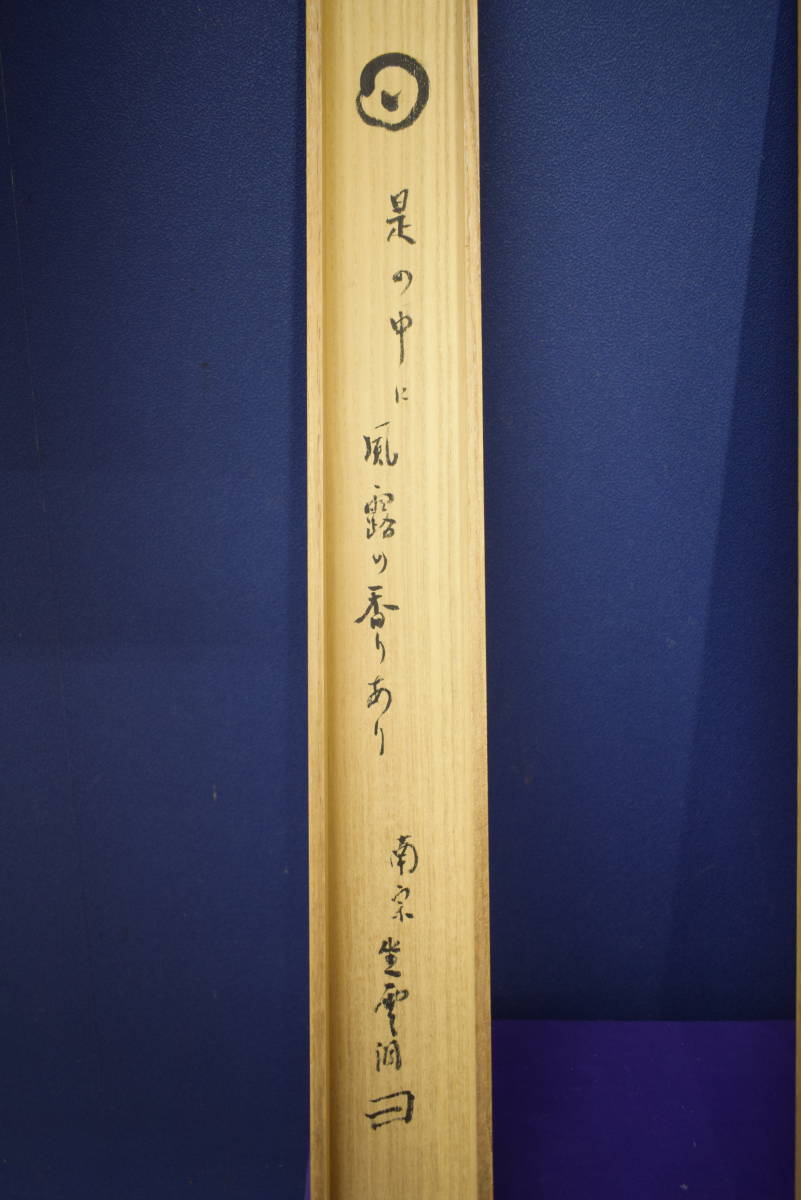 是の中に風露の香りあり
南宗 坐雲洞